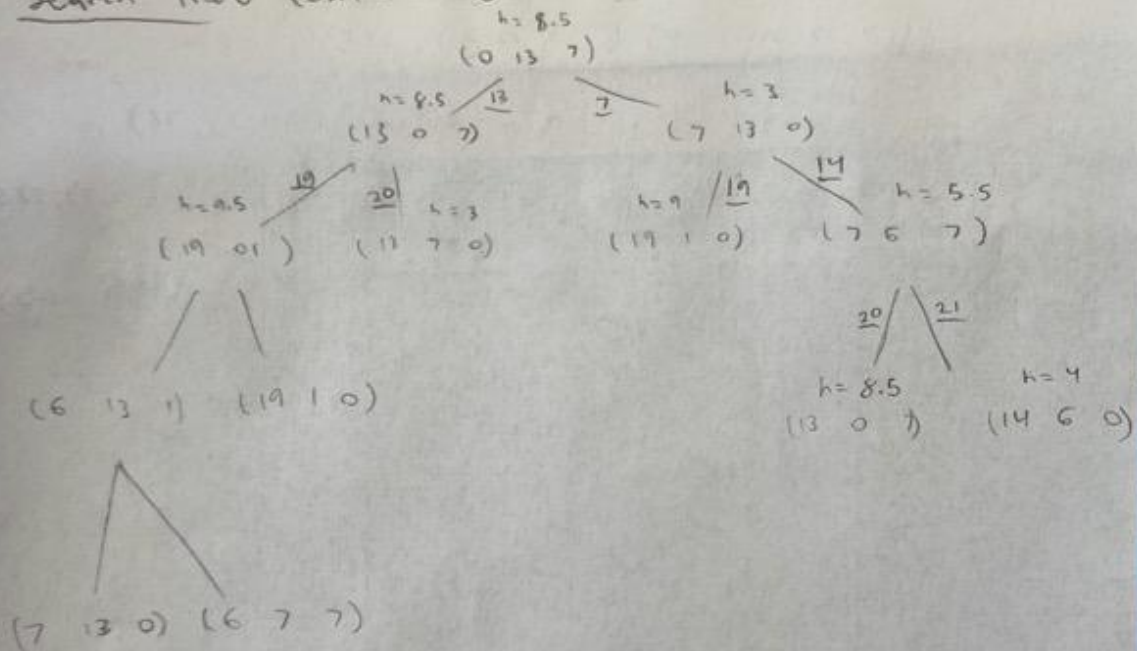 h = 8.5
(0 13 7)
h = 8.5 13 7 h = 3
(13 0 7) (7 13 0)
19 20 19 14
h = 9.5 h = 3 h = 9 h = 5.5
(19 0 1) (13 7 0) (19 1 0) (7 6 7)
20 21
h = 8.5 h = 4
(6 13 1) (19 1 0) (13 0 7) (14 6 0)
(7 13 0) (6 7 7)